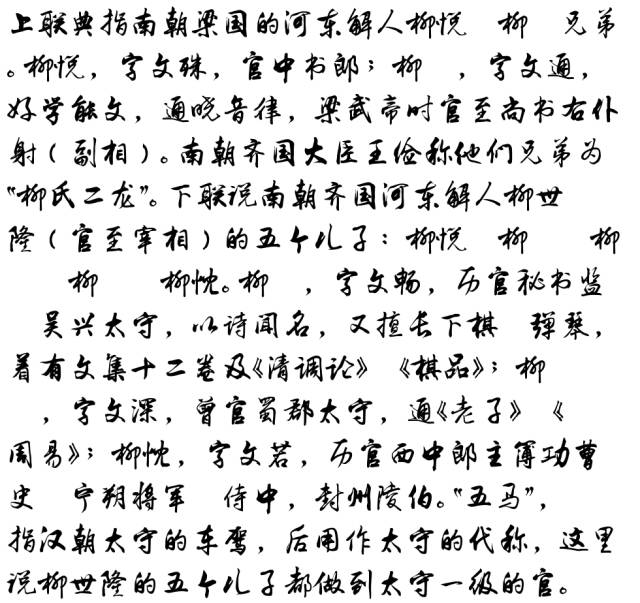 上联典指南朝梁国的河东解人柳悦 柳 兄弟
。柳悦，字文殊，官中书郎；柳 ，字文通，
好学能文，通晓音律，梁武帝时官至尚书右仆
射（副相）。南朝齐国大臣王俭称他们兄弟为
“柳氏二龙”。下联说南朝齐国河东解人柳世
隆（官至宰相）的五个儿子：柳悦 柳 柳
柳 柳忱。柳 ，字文畅，历官秘书监
吴兴太守，以诗闻名，又擅长下棋 弹琴，
着有文集十二卷及《清调论》 《棋品》；柳
，字文深，曾官蜀郡太守，通《老子》 《
周易》；柳忱，字文若，历官西中郎主簿功曹
史 宁朔将军 侍中，封州陵伯。“五马”，
指汉朝太守的车驾，后用作太守的代称，这里
说柳世隆的五个儿子都做到太守一级的官。